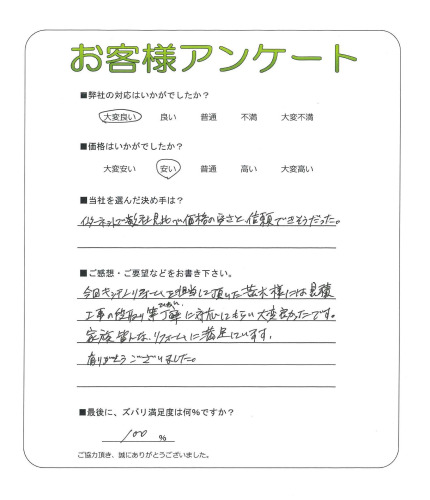 お客様アンケート
■弊社の対応はいかがでしたか？
大変良い 良い 普通 不満 大変不満
■価格はいかがでしたか？
大変安い 安い 普通 高い 大変高い
■当社を選んだ決め手は？
インターネットで数社見比べ価格の安さと信頼できそうだった。
■ご感想・ご要望などをお書き下さい。
今回キッチンリフォームを担当して頂いた 様には見積
工事の段取り等丁寧に対応してもらい大変良かったです。
家族皆んな、リフォームに満足しています。
ありがとうございました。
■最後に、ズバリ満足度は何％ですか？
100 ％
ご協力頂き、誠にありがとうございました。